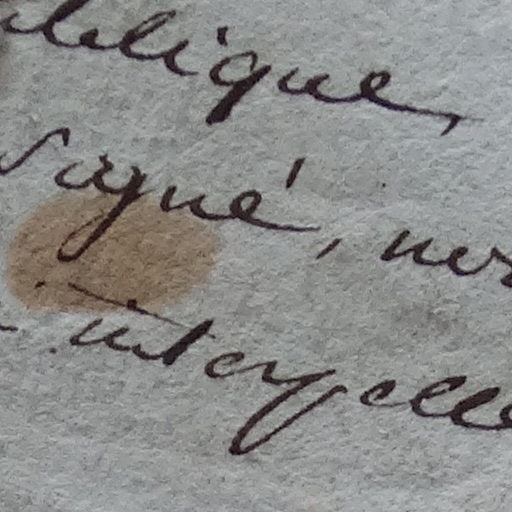 blique,
signé, ner
interpelle